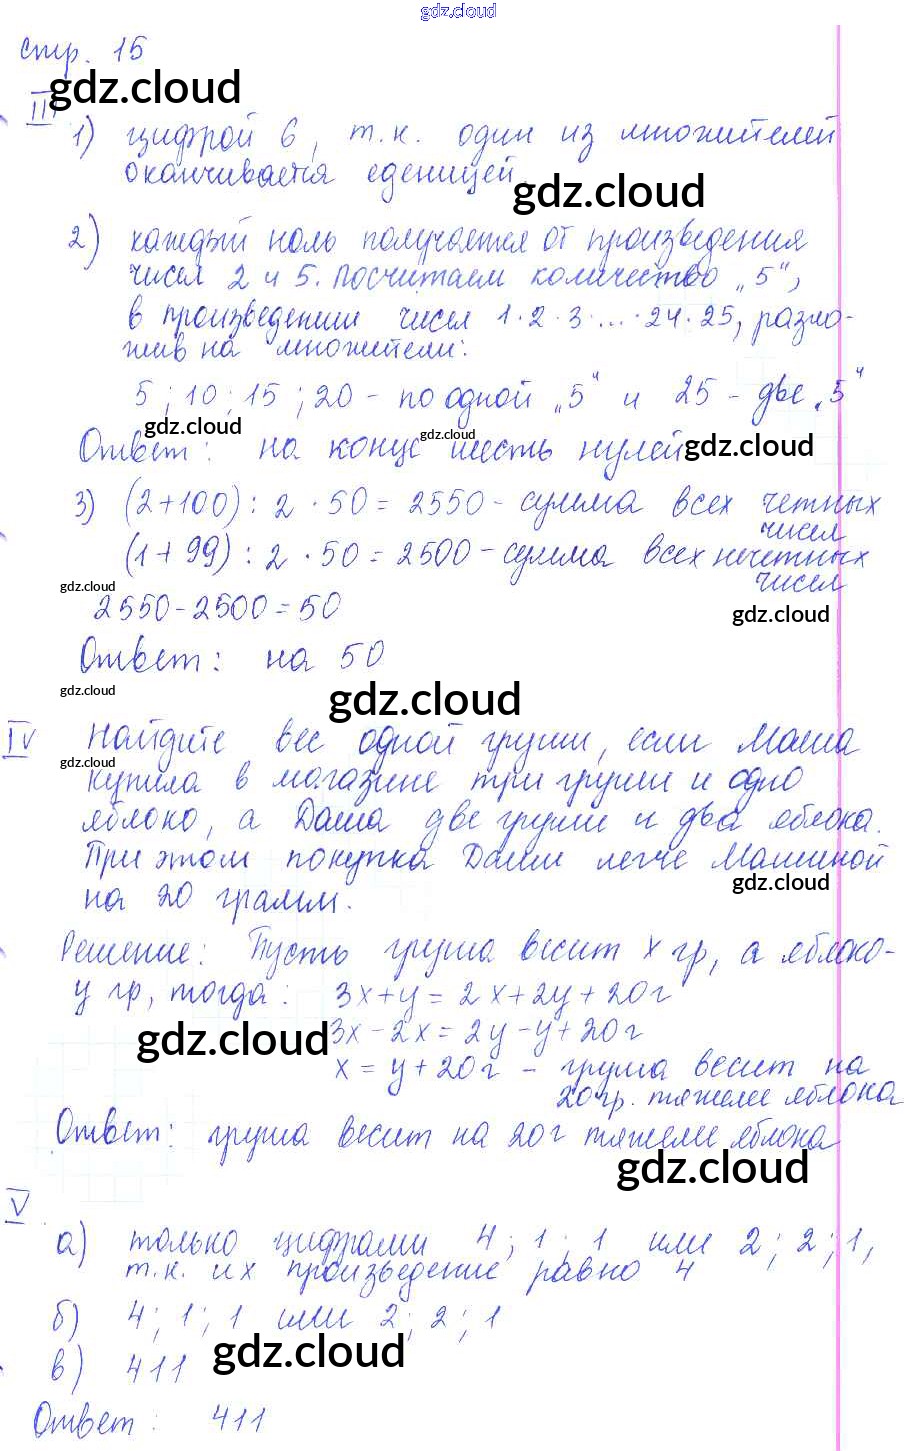 gdz.cloud
стр. 15
gdz.cloud
III
1) цифрой 6, т.к. один из множителей
оканчивается еденицей.
gdz.cloud
2) каждый ноль получается от произведения
чисел 2 и 5. Посчитаем количество „5“,
в произведении чисел 1·2·3·...·24·25, разло-
жив на множители:
5; 10; 15; 20 - по одной „5“ и 25 - две „5“
gdz.cloud gdz.cloud gdz.cloud
Ответ: на конце шесть нулей
3) (2+100) : 2 · 50 = 2550 - сумма всех четных
чисел
(1 + 99) : 2 · 50 = 2500 - сумма всех нечетных
чисел
gdz.cloud
2550 - 2500 = 50
gdz.cloud
Ответ: на 50
gdz.cloud gdz.cloud
IV Найдите вес одной груши, если Маша
gdz.cloud
купила в магазине три груши и одно
яблоко, а Даша две груши и два яблока.
При этом покупка Даши легче Машиной
на 20 грамм.
gdz.cloud
Решение: Пусть груша весит x гр, а яблоко-
y гр, тогда: 3x+y = 2x+2y+20г
gdz.cloud
3x-2x = 2y-y+20г
x = y+20г - груша весит на
20 гр. тяжелее яблока
Ответ: груша весит на 20г тяжелее яблока
gdz.cloud
V
а) только цифрами 4; 1; 1 или 2; 2; 1,
т.к. их произведение равно 4
б) 4; 1; 1 или 2; 2; 1
gdz.cloud
в) 411
Ответ: 411